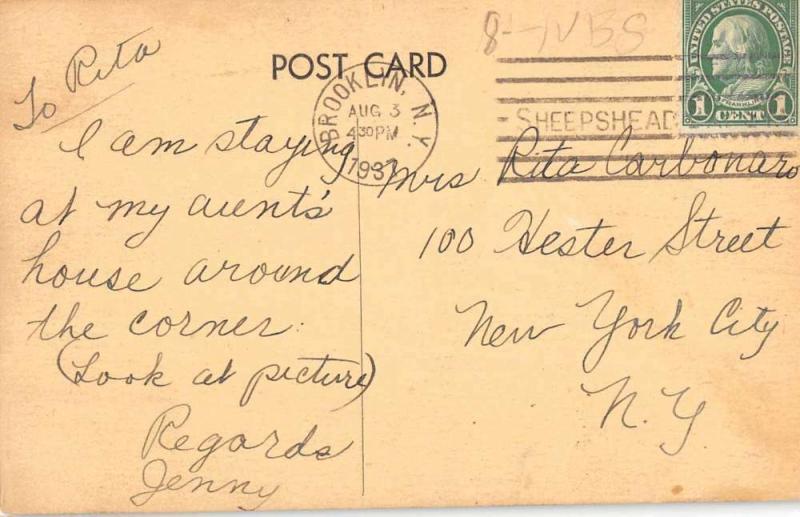 To Rita
POST CARD
BROOKLIN, N.Y.
AUG 3
4 30PM
1937
SHEEPSHEAD
UNITED STATES POSTAGE
FRANKLIN
1 CENT 1
I am staying
at my aunt's
house around
the corner.
(Look at picture)
Regards
Jenny
Mrs Rita Carbonaro
100 Hester Street
New York City
N.Y